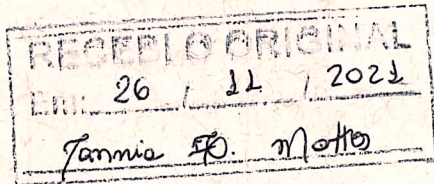 RECEBI O ORIGINAL
Em: 26 / 11 / 2021
Tannia